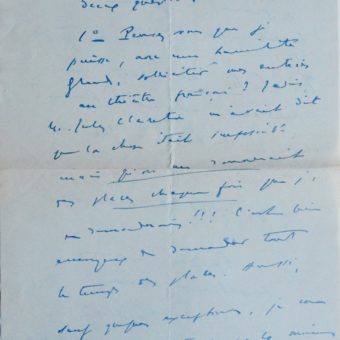 deux questions
1º Pensez-vous que je
puisse, avec une humilité
grande, solliciter mes entrées
au théâtre français ? Jadis
M. Jules Claretie m'avait dit
que la chose était impossible
mais qu'on me donnerait
des places chaque fois que j'
en demanderais !!! C'est bien
ennuyeux de demander tout
le temps des places. Aussi,
sauf quelques exceptions, je